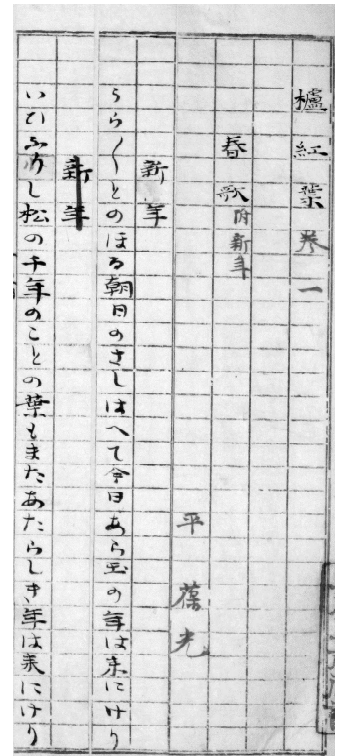 櫨紅葉巻一
春歌 附新年
平葆光
新年
うら〱とのほる朝日のさしはへて今日あら玉の年は来にけり
新年
いひふりし松の千年のことの葉もまたあたらしき年は来にけり